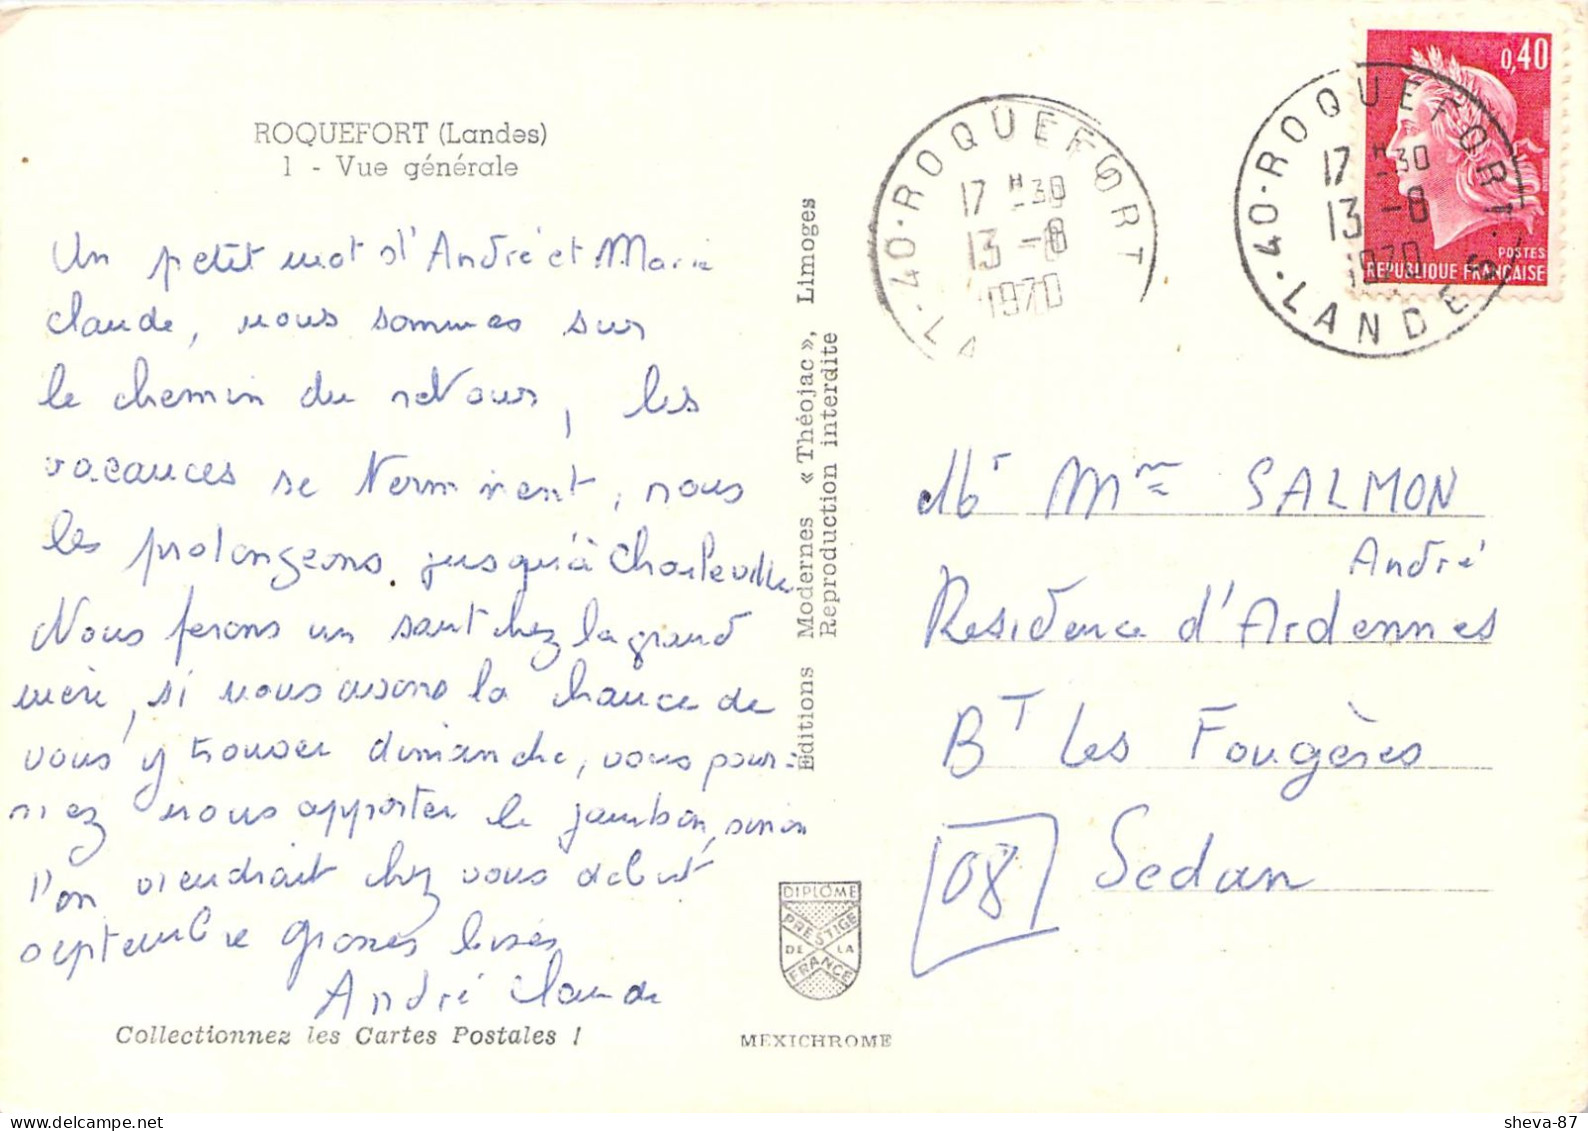 ROQUEFORT (Landes)
1 - Vue générale
Un petit mot d'André et Marie
claude, nous sommes sur
le chemin du retour, les
vacances se terminent, nous
les prolongeons jusqu'à Charleville
Nous ferons un saut chez la grand
mère, si nous avons la chance de
vous y trouver dimanche, vous pour-
riez nous apporter le jambon, sinon
l'on viendrait chez vous début
septembre grosses bises
André Claude
Collectionnez les Cartes Postales !
Editions Modernes « Théojac », Limoges
Reproduction interdite
DIPLÔME
PRESTIGE
DE LA
FRANCE
MEXICHROME
40 - ROQUEFORT
17 H 30
13 - 8
1970
LA
40 - ROQUEFORT
17 H 30
13 - 8
1970
LANDES
0,40
POSTES
REPUBLIQUE FRANÇAISE
Mr Mme SALMON
André
Residence d'Ardennes
BT Les Fougères
08 Sedan
sheva-87